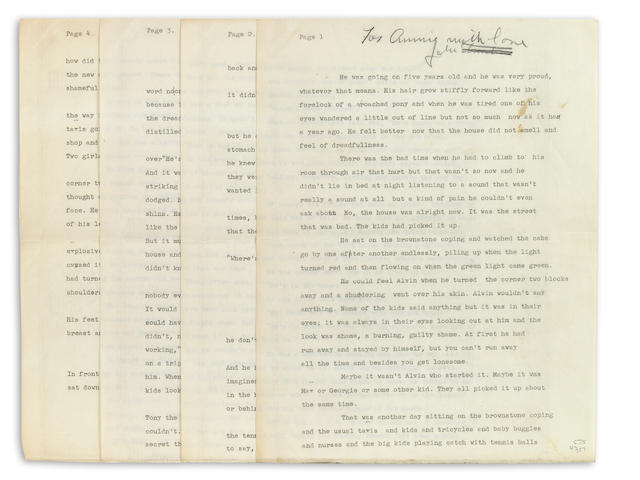 Page 4.
how did
the new
shameful
the way
taxis go
shop and
Two girl
corner t
thought
face. He
of his l
explosiv
had turn
shoulder
His feet
breast a
In front
sat down
Page 3.
word
because
the dread
distilled
over"He's
And it w
striking
dodged.
shins. He
like the
But it mu
house and
didn't kn
nobody ev
It would
could hav
didn't, n
working,"
on a trip
him. When
kids look
Tony the
couldn't.
secret th
Page 2.
back an
it didn
but he
stomach
he knew
they we
wanted
times,
that the
"Where's
he don'
And he
imagine
in the
or behi
the ten
to say,
Page 1
For Annie with love
John
He was going on five years old and he was very proud,
whatever that means. His hair grew stiffly forward like the
forelock of a roached pony and when he was tired one of his
eyes wandered a little out of line but not so much now as it had
a year ago. He felt better now that the house did not smell and
feel of dreadfullness.
There was the bad time when he had to climb to his
room through air that hurt but that wasn't so now and he
didn't lie in bed at night listening to a sound that wasn't
really a sound at all but a kind of pain he couldn't even
ask about. No, the house was alright now. It was the street
that was bad. The kids had picked it up.
He sat on the brownstone coping and watched the cabs
go by one after another endlessly, piling up when the light
turned red and then flowing on when the green light came green.
He could feel Alvin when he turned the corner two blocks
away and a shuddering went over his skin. Alvin wouldn't say
anything. None of the kids said anything but it was in their
eyes; it was always in their eyes looking out at him and the
look was shame, a burning, guilty shame. At first he had
run away and stayed by himself, but you can't run away
all the time and besides you get lonesome.
Maybe it wasn't Alvin who started it. Maybe it was
Max or Georgie or some other kid. They all picked it up about
the same time.
That was another day sitting on the brownstone coping
and the usual taxis and kids and tricycles and baby buggies
and nurses and the big kids playing catch with tennis balls